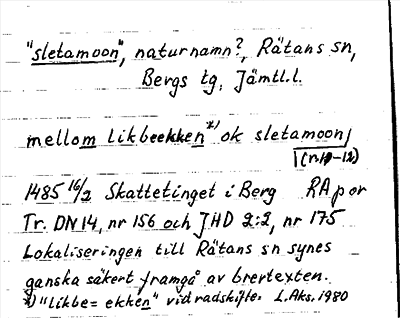 "sletamoon", naturnamn?, Rätans sn,
Bergs tg, Jämtl.l.
mellom likbeekken*) ok sletamoon/
(r.10-12)
1485 16/2 Skattetinget i Berg RAp or
Tr. DN 14, nr 156 och JHD 2:2, nr 175
Lokaliseringen till Rätans sn synes
ganska säkert framgå av brevtexten.
*) "likbe= ekken" vid radskifte. L.Aks. 1980